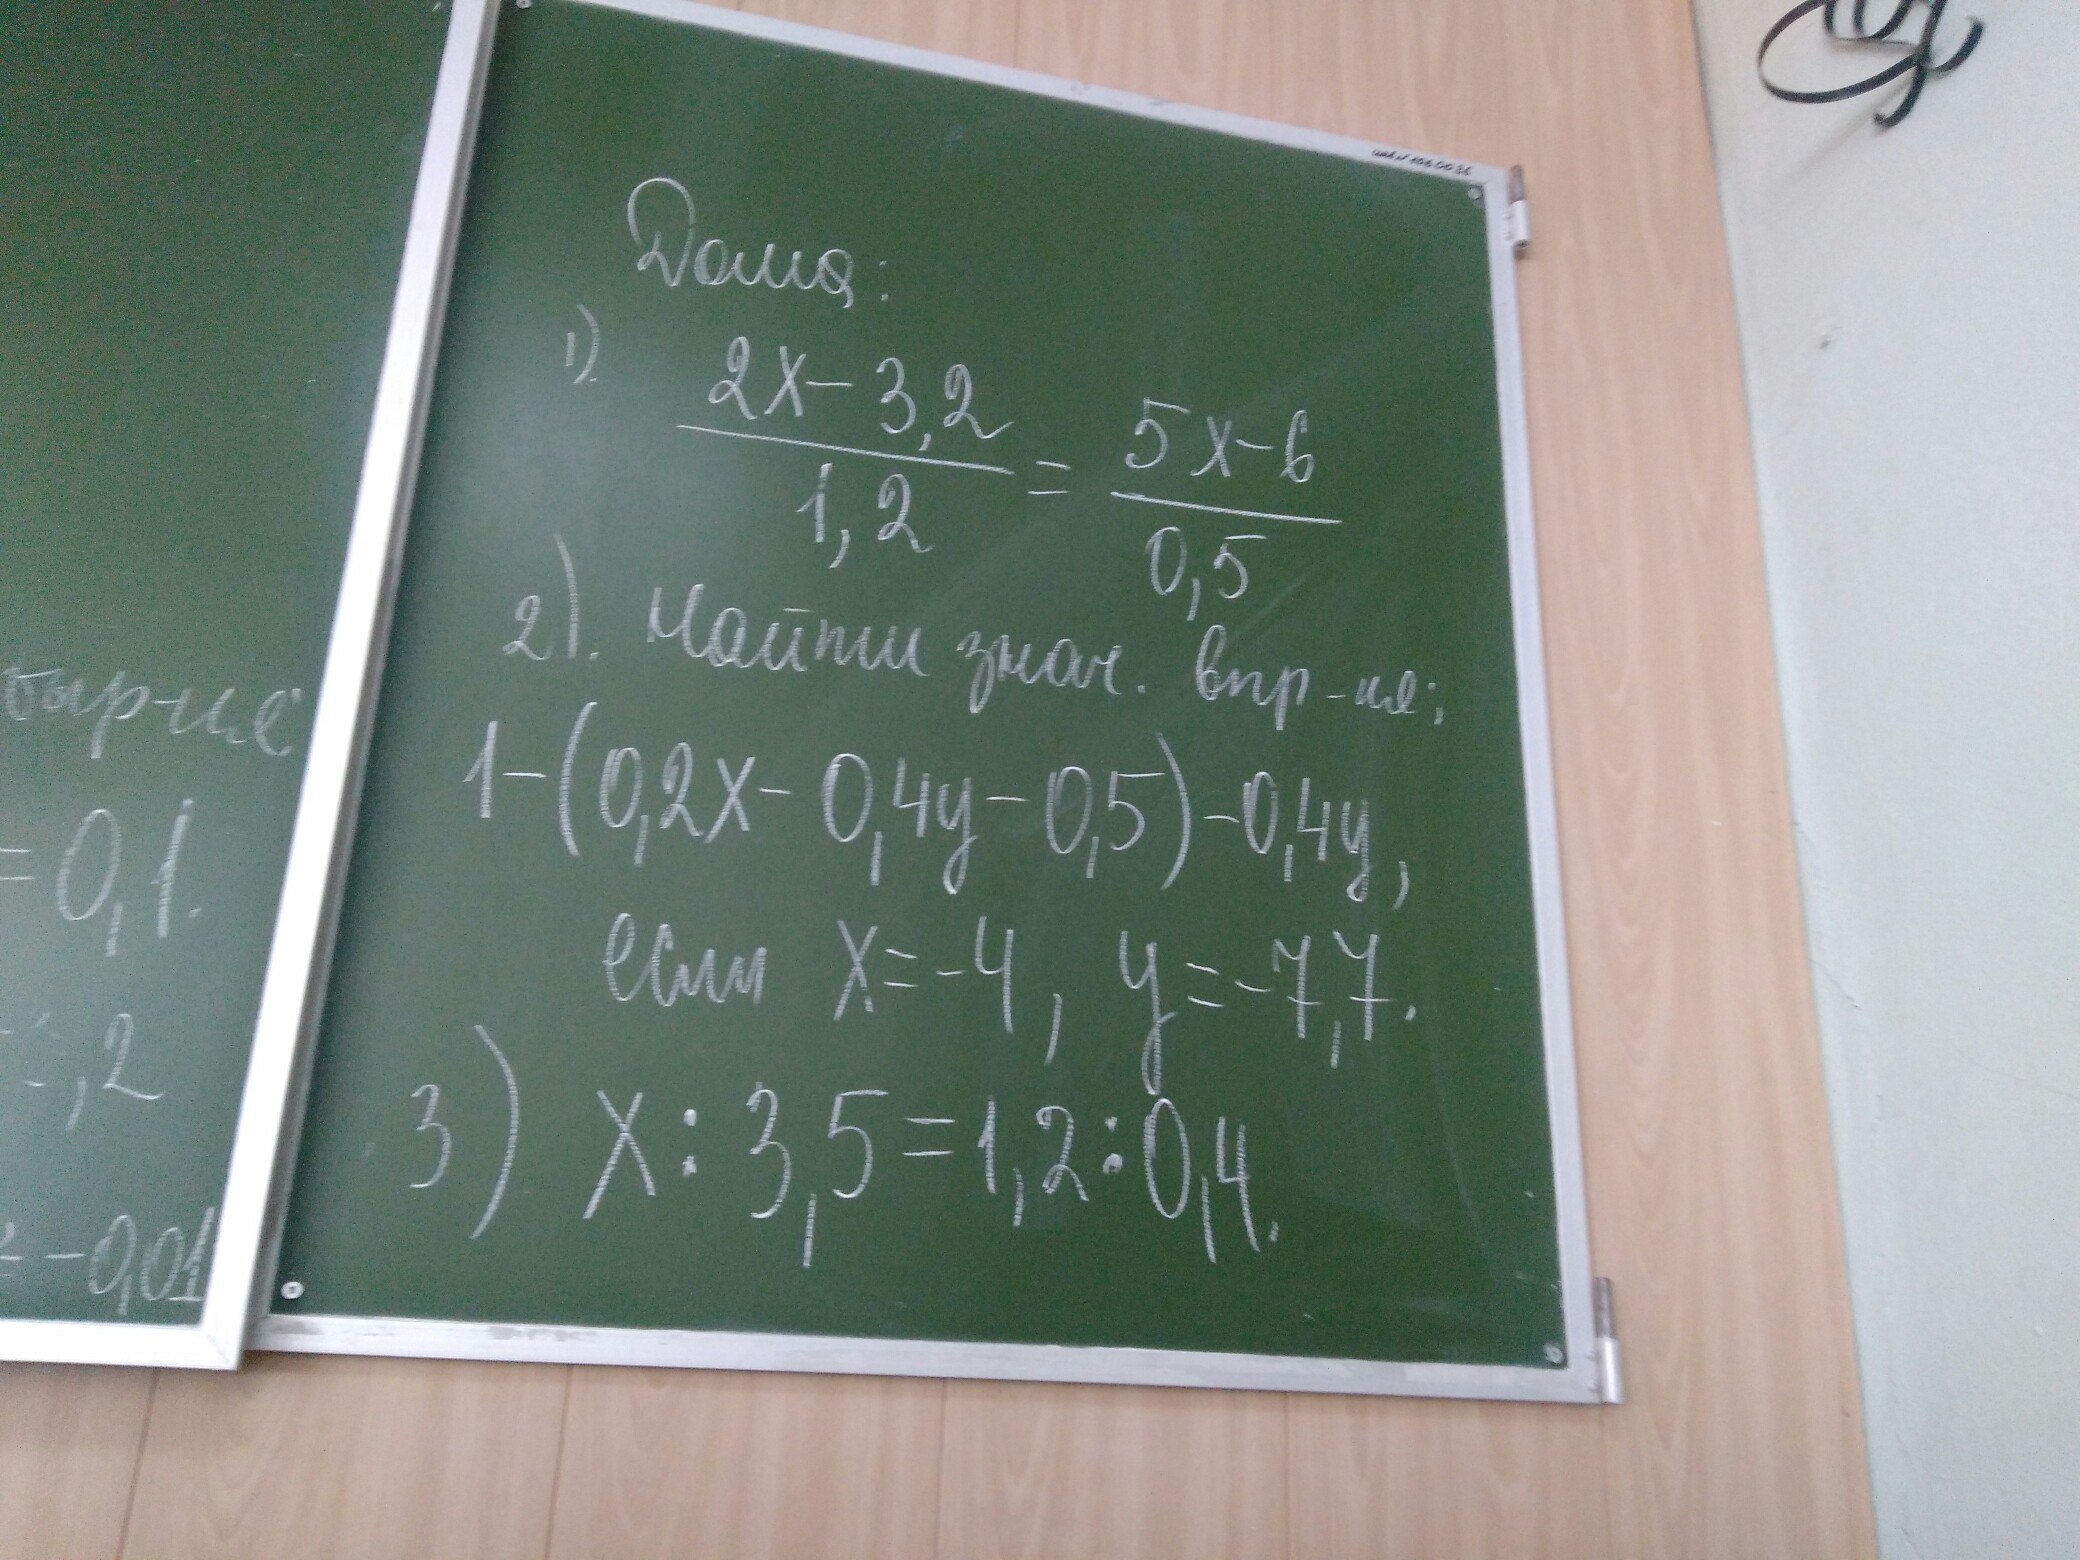 Дома:
1). 2x-3,2 / 1,2 = 5x-6 / 0,5
2). Найти знач. впр-ия:
1-(0,2x-0,4y-0,5)-0,4y,
если x=-4, y=-7,7.
3) x:3,5=1,2:0,4.
выр-ие
=0,1.
,2
-0,01